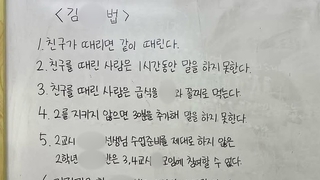 <김 법>
1. 친구가 때리면 같이 때린다.
2. 친구를 때린 사람은 1시간동안 말을 하지 못한다.
3. 친구를 때린 사람은 급식을 과 꼴찌로 먹는다.
4. 2를 지키지 않으면 30분을 추가해 말을 하지 못한다.
5. 2교시 선생님 수업준비를 제대로 하지 않은
2학년 반은 3,4교시 모임에 참여할 수 없다.